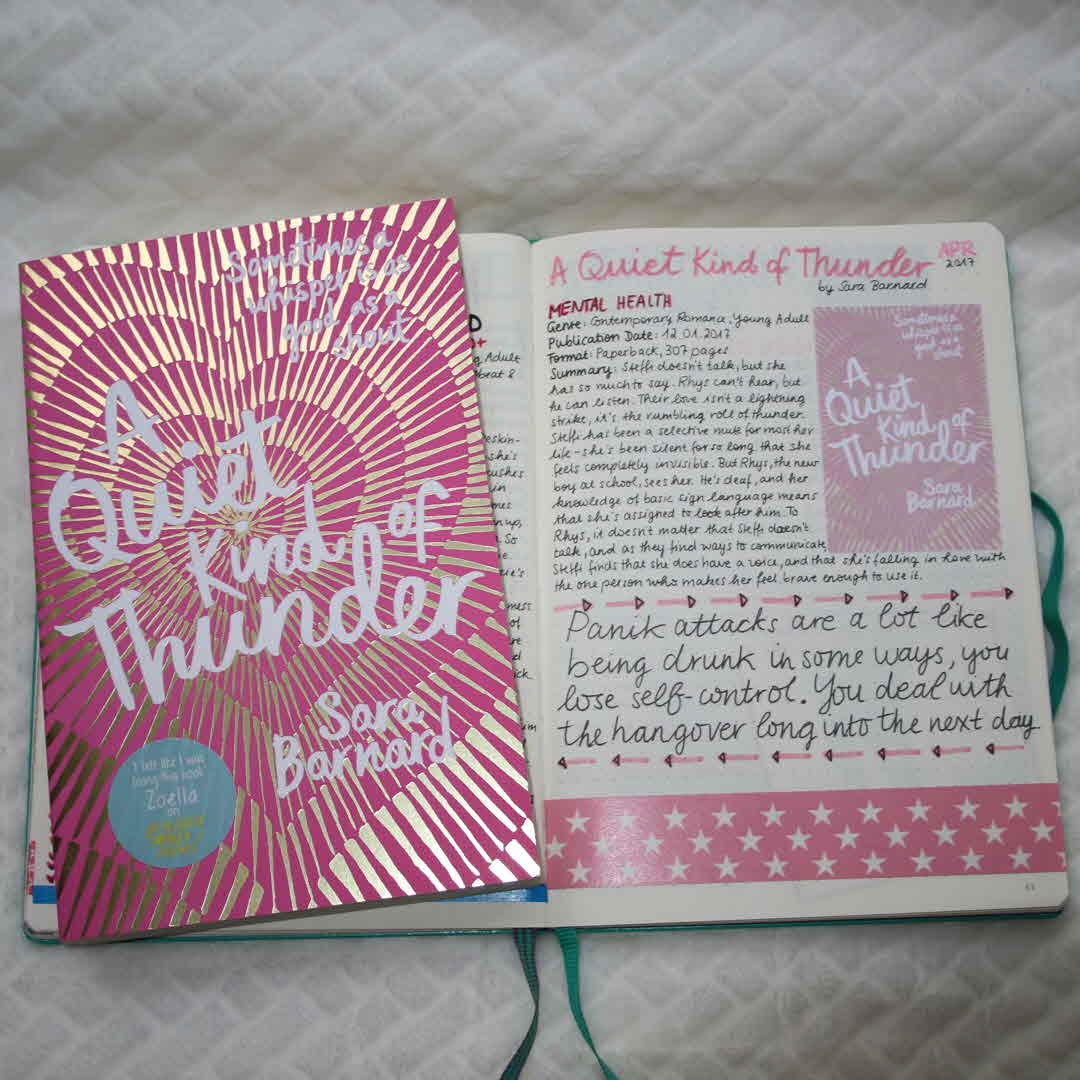 Sometimes a
whisper is as
good as a
shout
A
Quiet
Kind of
Thunder
Sara
Barnard
'I felt like I was
living this book'
Zoella
on
Adult
beat &
eskin-
she's
ushes
in
nes
n up,
. So
e
zie's
mess
of
re
ick
um
A Quiet Kind of Thunder
APR
2017
by Sara Barnard
MENTAL HEALTH
Genre: Contemporary Romance, Young Adult
Publication Date: 12.01.2017
Format: Paperback, 307 pages
Summary: Steffi doesn't talk, but she
has so much to say. Rhys can't hear, but
he can listen. Their love isn't a lightning
strike, it's the rumbling roll of thunder.
Steffi has been a selective mute for most her
life – she's been silent for so long that she
feels completely invisible. But Rhys, the new
boy at school, sees her. He's deaf, and her
knowledge of basic sign language means
that she's assigned to look after him. To
Rhys, it doesn't matter that Steffi doesn't
talk, and as they find ways to communicate,
Steffi finds that she does have a voice, and that she's falling in love with
the one person who makes her feel brave enough to use it.
Sometimes a
whisper is as
good as a
shout
A
Quiet
Kind of
Thunder
Sara
Barnard
Panik attacks are a lot like
being drunk in some ways, you
lose self-control. You deal with
the hangover long into the next day